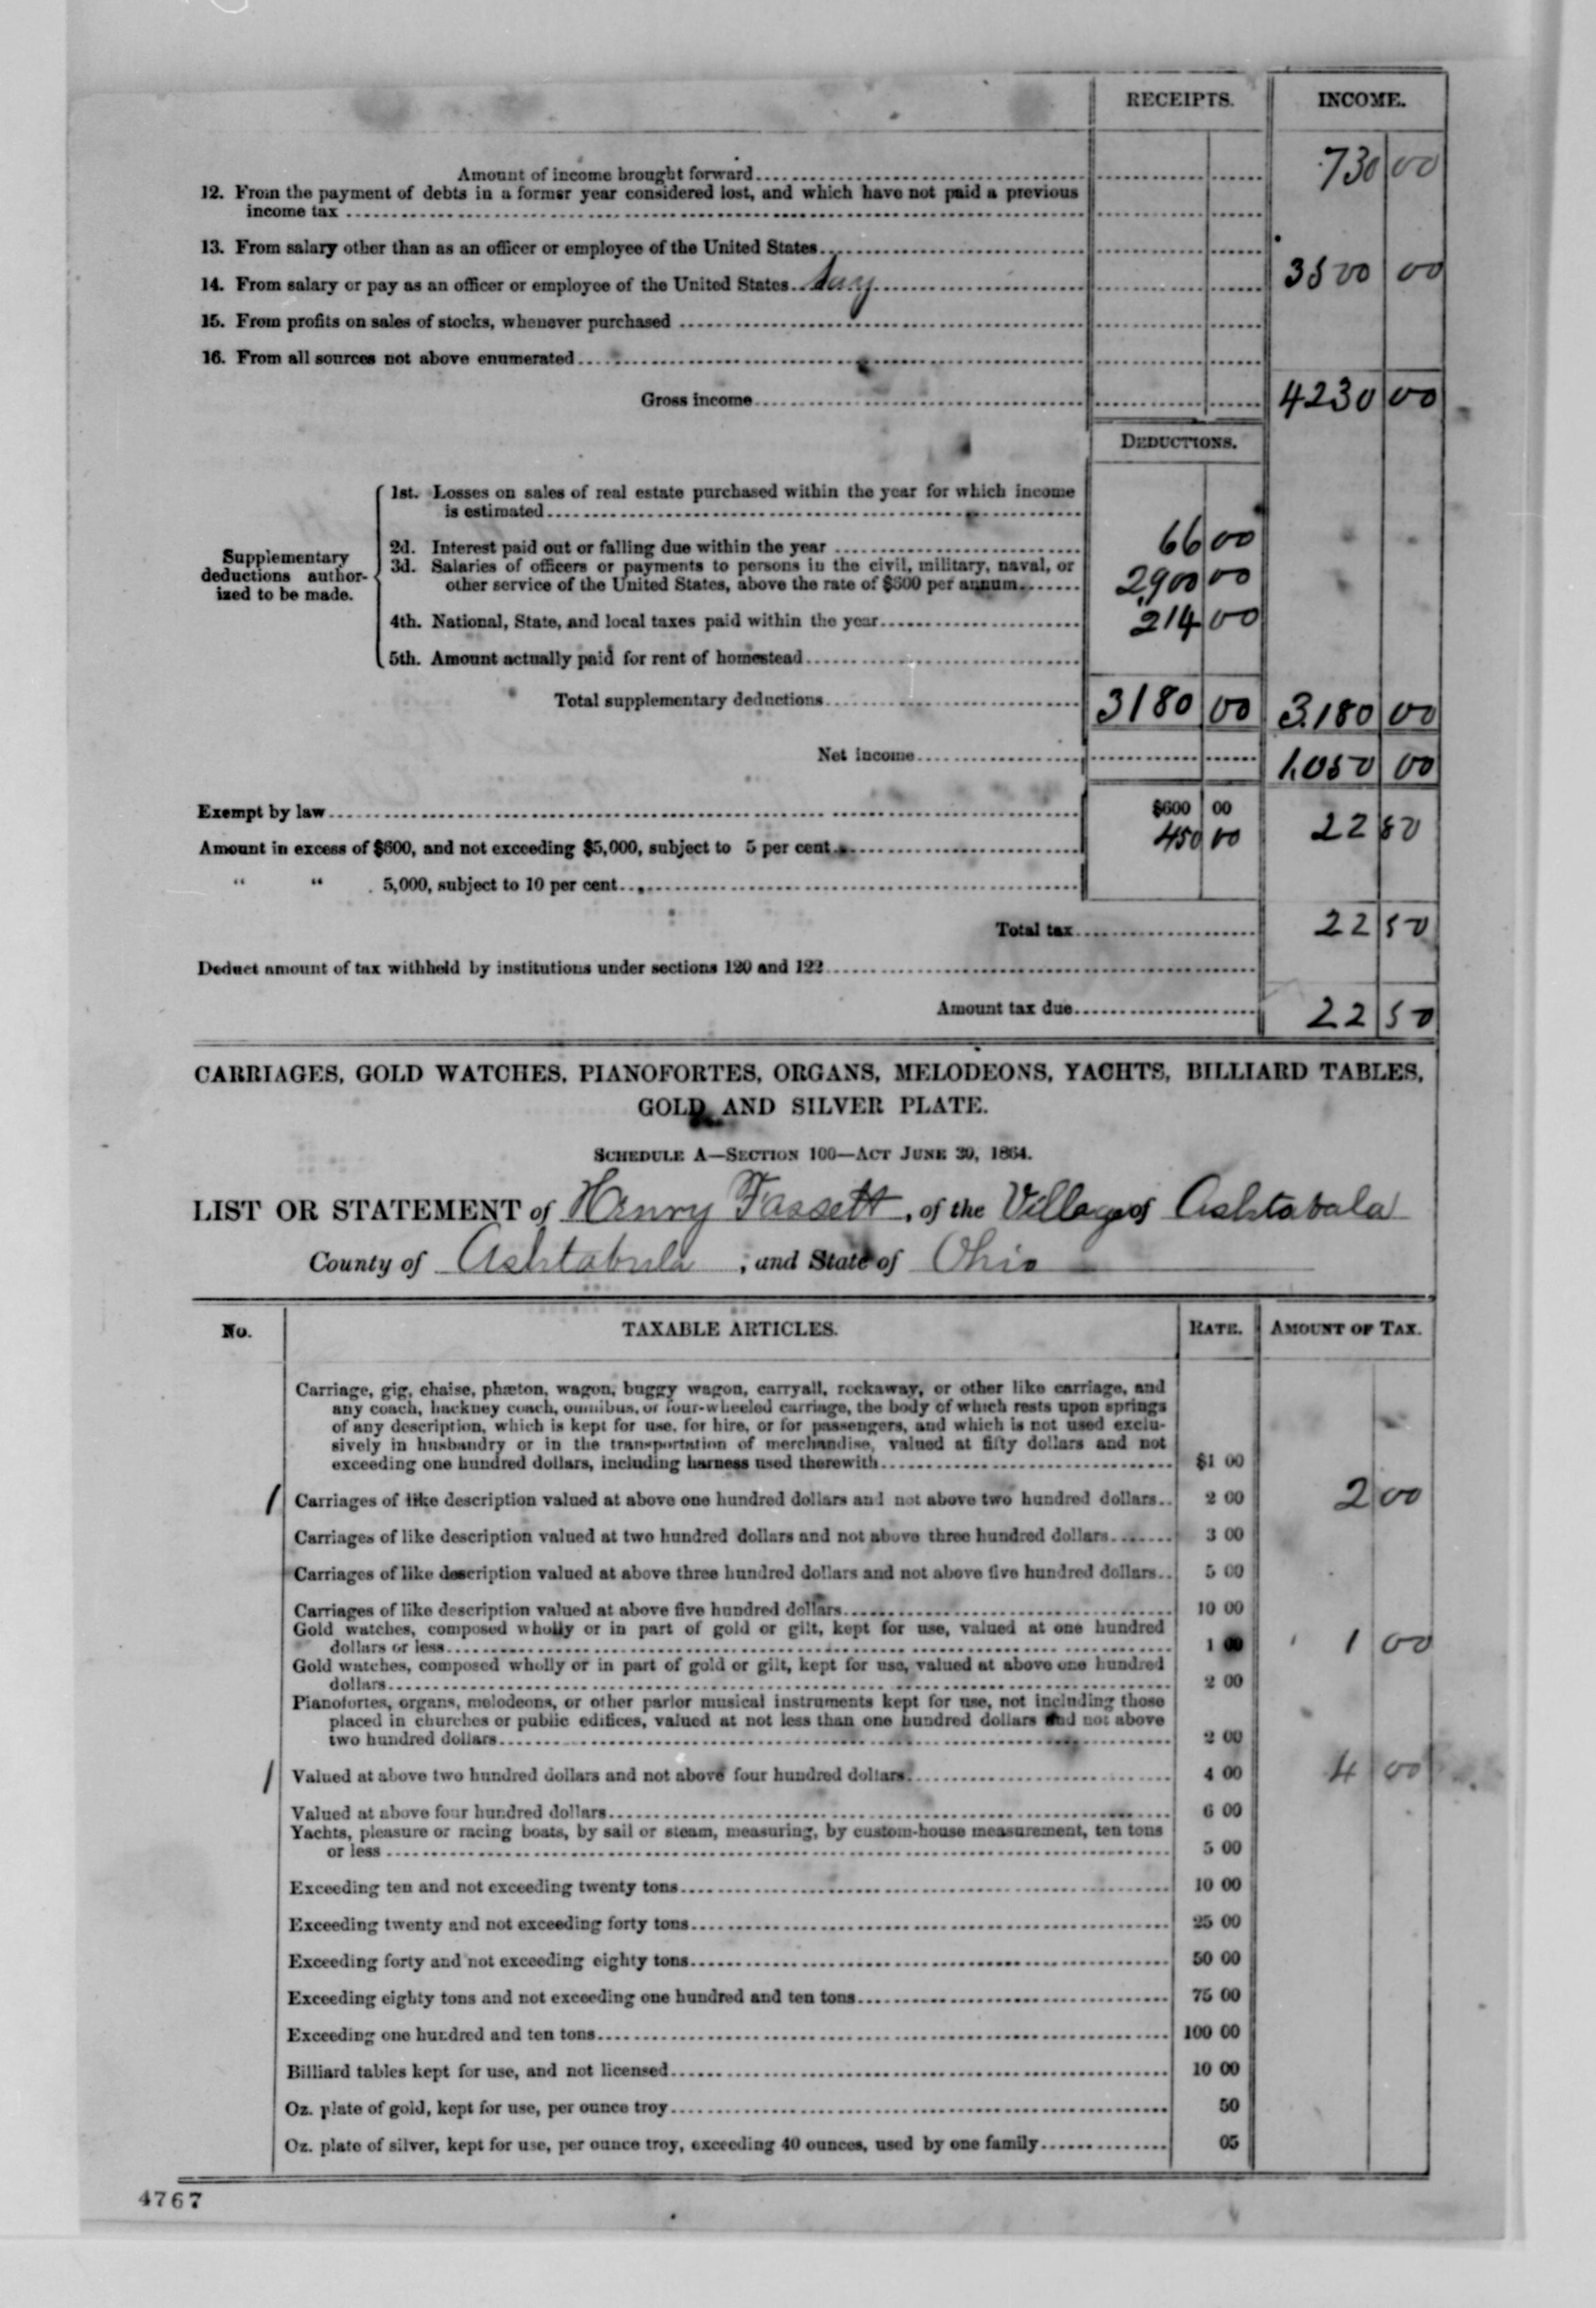 RECEIPTS. INCOME.
Amount of income brought forward 730 00
12. From the payment of debts in a former year considered lost, and which have not paid a previous
income tax
13. From salary other than as an officer or employee of the United States
14. From salary or pay as an officer or employee of the United States 3500 00
15. From profits on sales of stocks, whenever purchased
16. From all sources not above enumerated
Gross income 4230 00
DEDUCTIONS.
Supplementary deductions author-ized to be made.
1st. Losses on sales of real estate purchased within the year for which income
is estimated
2d. Interest paid out or falling due within the year 66 00
3d. Salaries of officers or payments to persons in the civil, military, naval, or
other service of the United States, above the rate of $600 per annum 2,900 00
4th. National, State, and local taxes paid within the year 214 00
5th. Amount actually paid for rent of homestead
Total supplementary deductions 3180 00 3.180 00
Net income 1.050 00
Exempt by law $600 00
Amount in excess of $600, and not exceeding $5,000, subject to 5 per cent 450 00 22 50
“ “ 5,000, subject to 10 per cent
Total tax 22 50
Deduct amount of tax withheld by institutions under sections 120 and 122
Amount tax due 22 50
CARRIAGES, GOLD WATCHES, PIANOFORTES, ORGANS, MELODEONS, YACHTS, BILLIARD TABLES,
GOLD AND SILVER PLATE.
SCHEDULE A—SECTION 100—ACT JUNE 30, 1864.
LIST OR STATEMENT of Henry Fassett, of the Village of Ashtabala
County of Ashtabula, and State of Ohio
No. TAXABLE ARTICLES. RATE. AMOUNT OF TAX.
Carriage, gig, chaise, phæton, wagon, buggy wagon, carryall, rockaway, or other like carriage, and
any coach, hackney coach, omnibus, or four-wheeled carriage, the body of which rests upon springs
of any description, which is kept for use, for hire, or for passengers, and which is not used exclu-
sively in husbandry or in the transportation of merchandise, valued at fifty dollars and not
exceeding one hundred dollars, including harness used therewith $1 00
1 Carriages of like description valued at above one hundred dollars and not above two hundred dollars 2 00 2 00
Carriages of like description valued at two hundred dollars and not above three hundred dollars 3 00
Carriages of like description valued at above three hundred dollars and not above five hundred dollars 5 00
Carriages of like description valued at above five hundred dollars 10 00
Gold watches, composed wholly or in part of gold or gilt, kept for use, valued at one hundred
dollars or less 1 00 1 00
Gold watches, composed wholly or in part of gold or gilt, kept for use, valued at above one hundred
dollars 2 00
Pianofortes, organs, melodeons, or other parlor musical instruments kept for use, not including those
placed in churches or public edifices, valued at not less than one hundred dollars and not above
two hundred dollars 2 00
1 Valued at above two hundred dollars and not above four hundred dollars 4 00 4 00
Valued at above four hundred dollars 6 00
Yachts, pleasure or racing boats, by sail or steam, measuring, by custom-house measurement, ten tons
or less 5 00
Exceeding ten and not exceeding twenty tons 10 00
Exceeding twenty and not exceeding forty tons 25 00
Exceeding forty and not exceeding eighty tons 50 00
Exceeding eighty tons and not exceeding one hundred and ten tons 75 00
Exceeding one hundred and ten tons 100 00
Billiard tables kept for use, and not licensed 10 00
Oz. plate of gold, kept for use, per ounce troy 50
Oz. plate of silver, kept for use, per ounce troy, exceeding 40 ounces, used by one family 05
4767